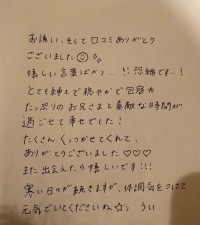 お誘い、そして口コミありがとう
ございました
嬉しい言葉ばかり…!! 恐縮です…!
とても紳士で穏やかで包容力
たっぷりのお兄さまと素敵な時間が
過ごせて幸せでした!
たくさんくっつかせてくれて、
ありがとうございました♡♡♡
また出会えたら嬉しいです!!!
寒い日々が続きますが、体調気をつけて
元気でいてくださいね☆ うい